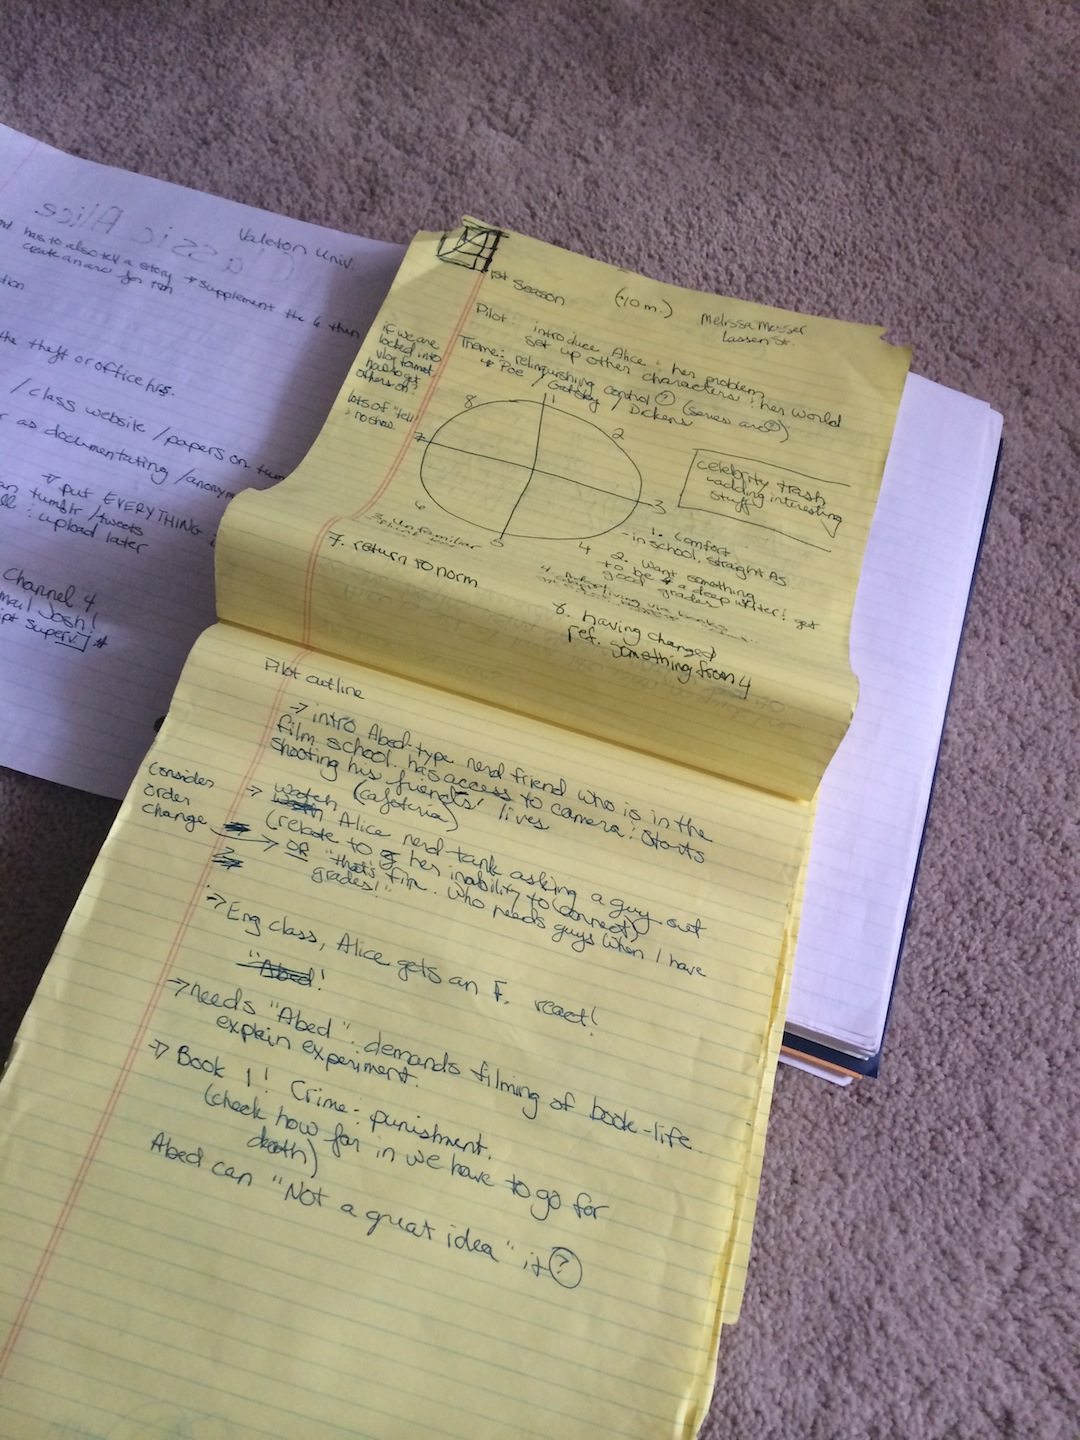 Classic Alice
Valeton Univ.
has to also tell a story → supplement the 6 than
create an arc for
the theft or office hrs.
/ class website / papers on
as documentating / anonym
→ put EVERYTHING
tumblr / tweets
: upload later
Channel 4
Josh!
Superv.
1st Season
(~10 m.)
Melissa Messer
Lassen St.
Pilot: introduce Alice & her problem
set up other characters & her world
Theme: relinquishing control ? (series arc?)
→ Poe / Gatsby / Dickens
if we are
locked into
vlog format
how to get
others on?
lots of "tell"
no show
1
2
3
4
5
6
7
8
celebrity trash
adding interesting
stuff
1. Comfort
- in school, straight As
2. Want something
to be a deep writer! get
good grades
3. Unfamiliar
4.
6. having changed
ref. something from 4
7. return to norm
Pilot outline
→ intro Abed-type nerd friend who is in the
film school. has access to camera! Starts
shooting his friends' lives
(cafeteria)
→ watch Alice nerd-tank asking a guy out
(relate to her inability to connect)
→ OR "that's fine. Who needs guys when I have
grades!"
consider
order
change
→ Eng class, Alice gets an F. react!
"Abed!
→ needs "Abed": demands filming of book-life
explain experiment.
→ Book 1! Crime & punishment.
(check how far in we have to go for
death)
Abed can "Not a great idea" it ?